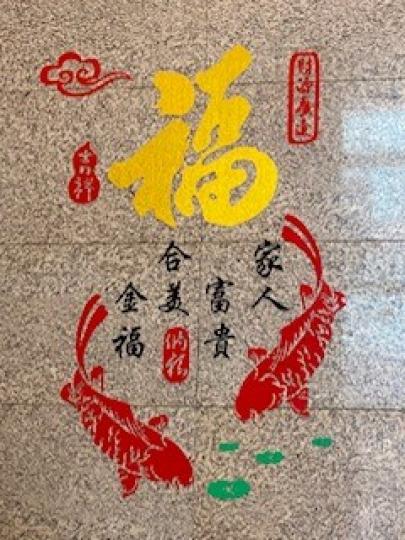 福
財源廣進
吉祥
家人
富貴
合美
金福
納福